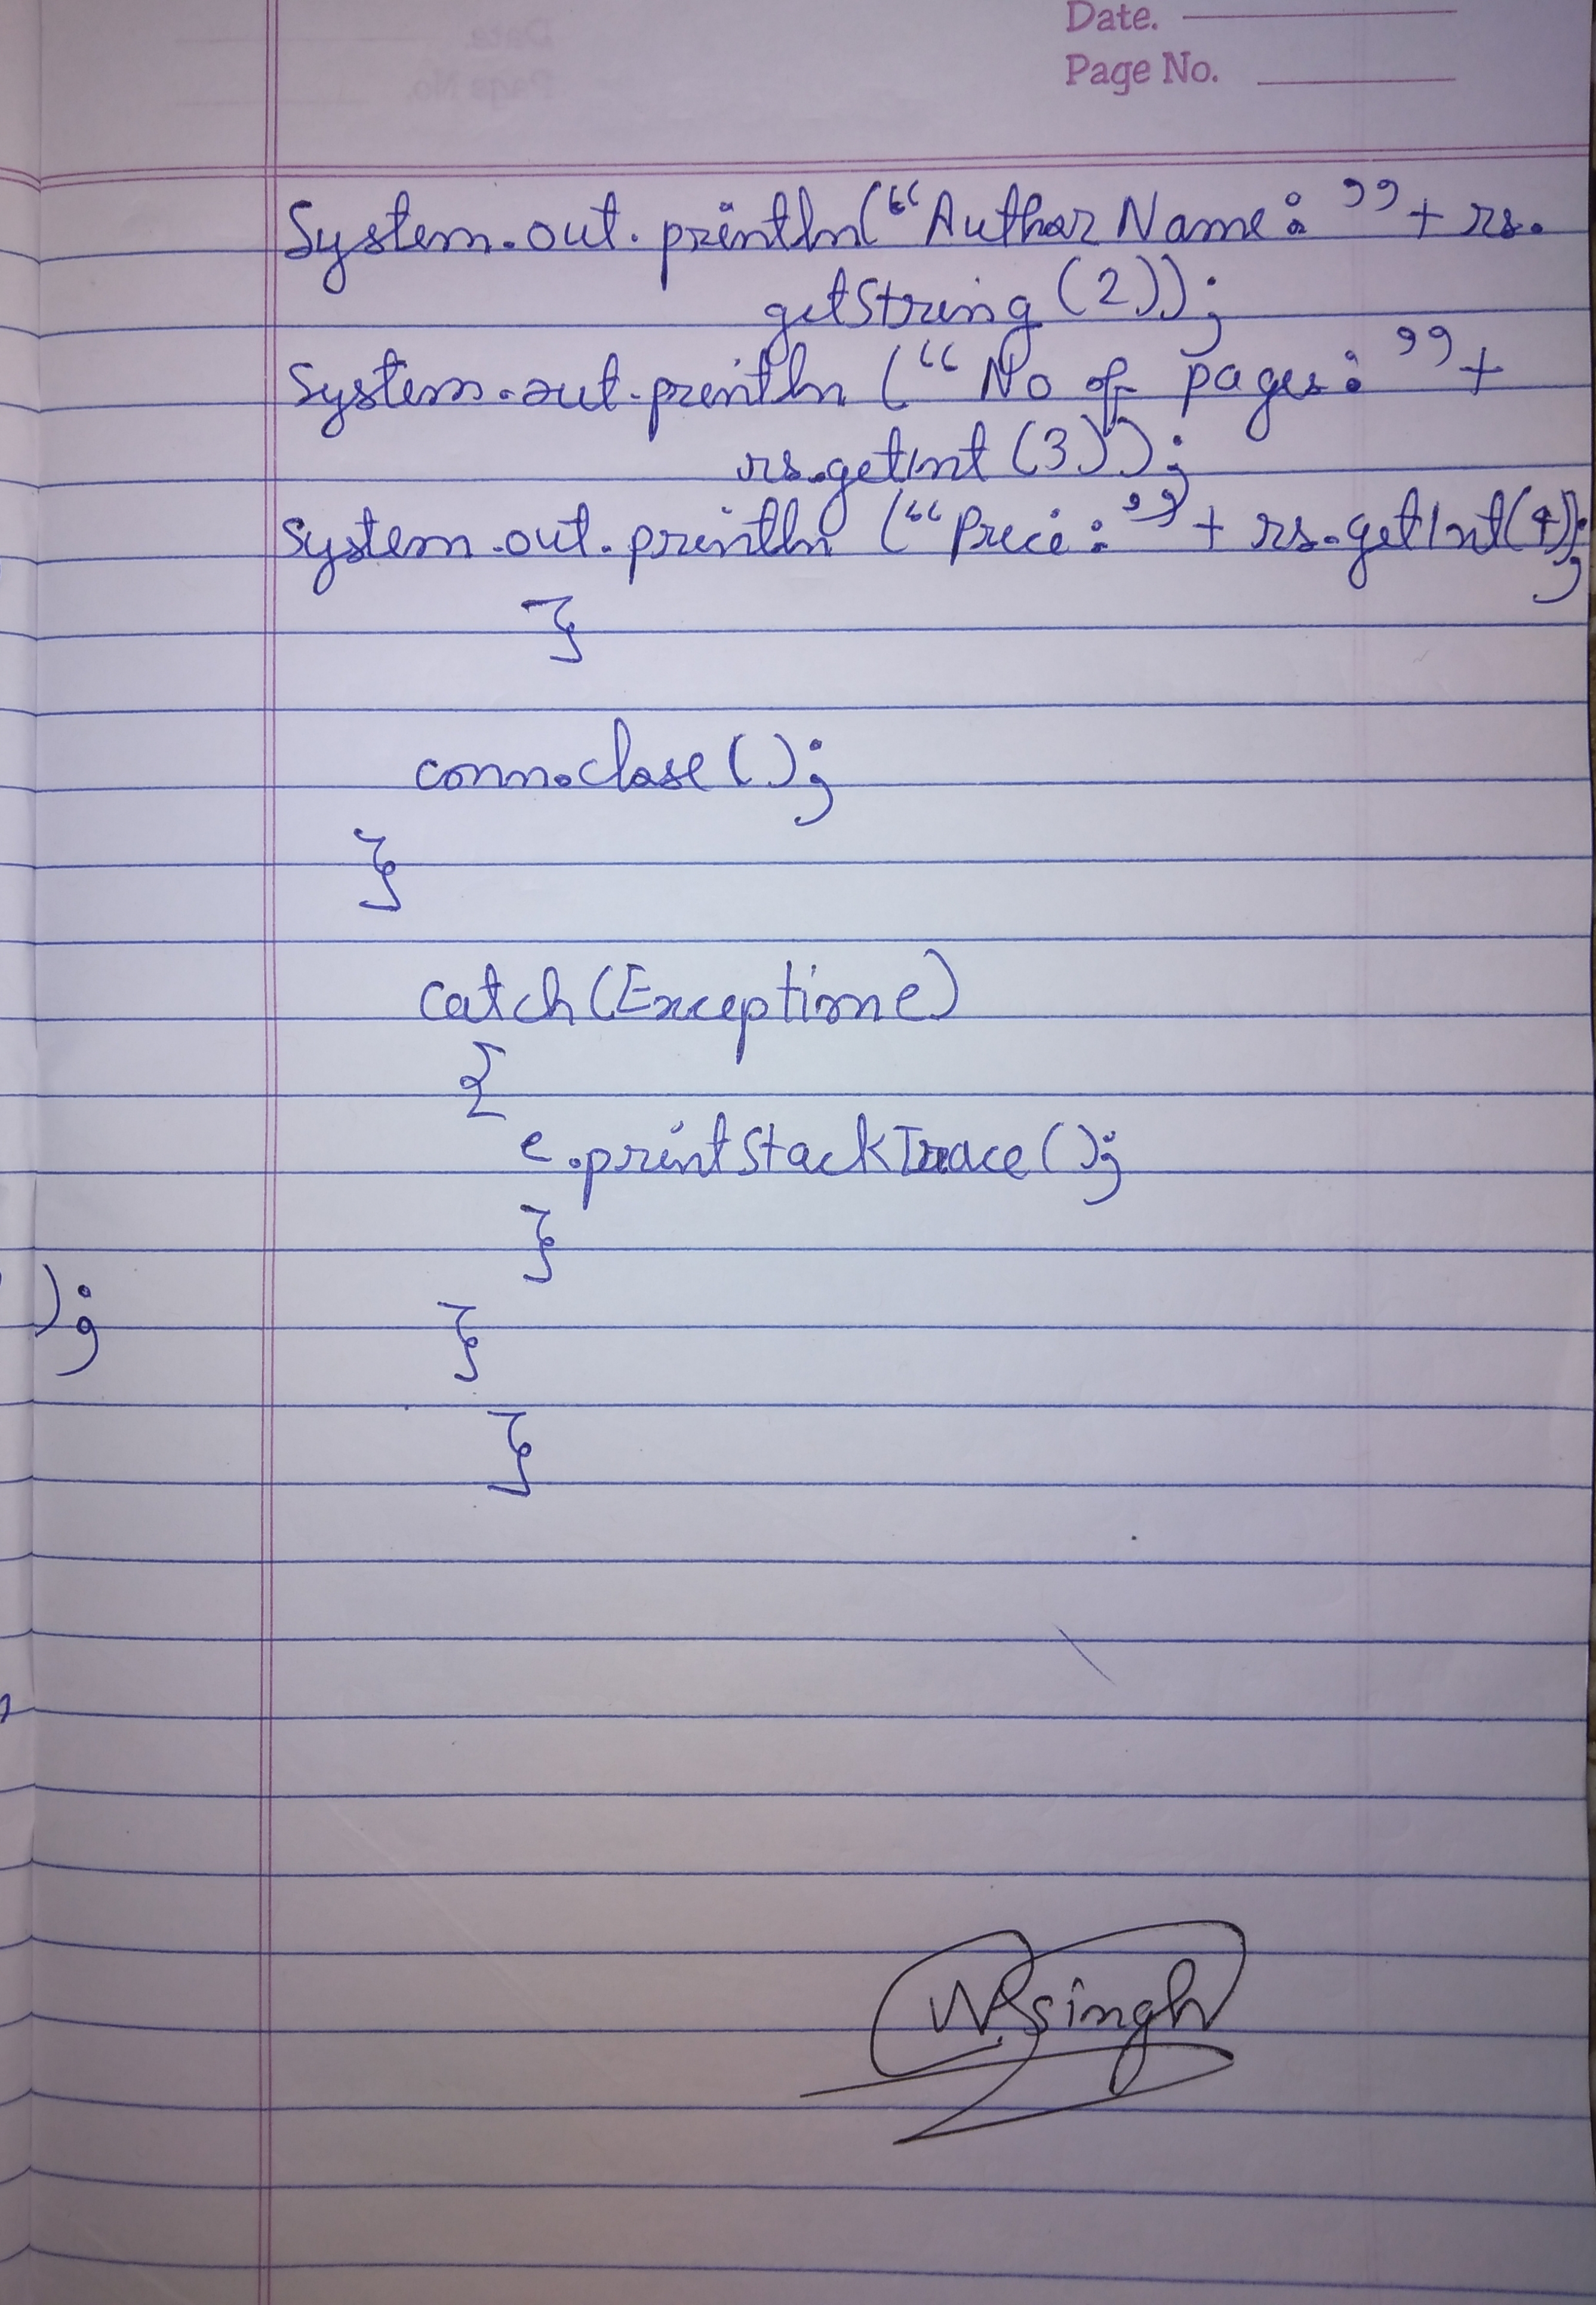 Date.
Page No.
System.out.println("Author Name: "+ rs.
getString (2));
System.out.println ("No of pages: "+
rs.getInt (3));
System.out.println ("Price: "+ rs.getInt(4));
}
conn.close();
}
catch(Exception e)
{
e.printStackTrace();
}
);
}
}
singh